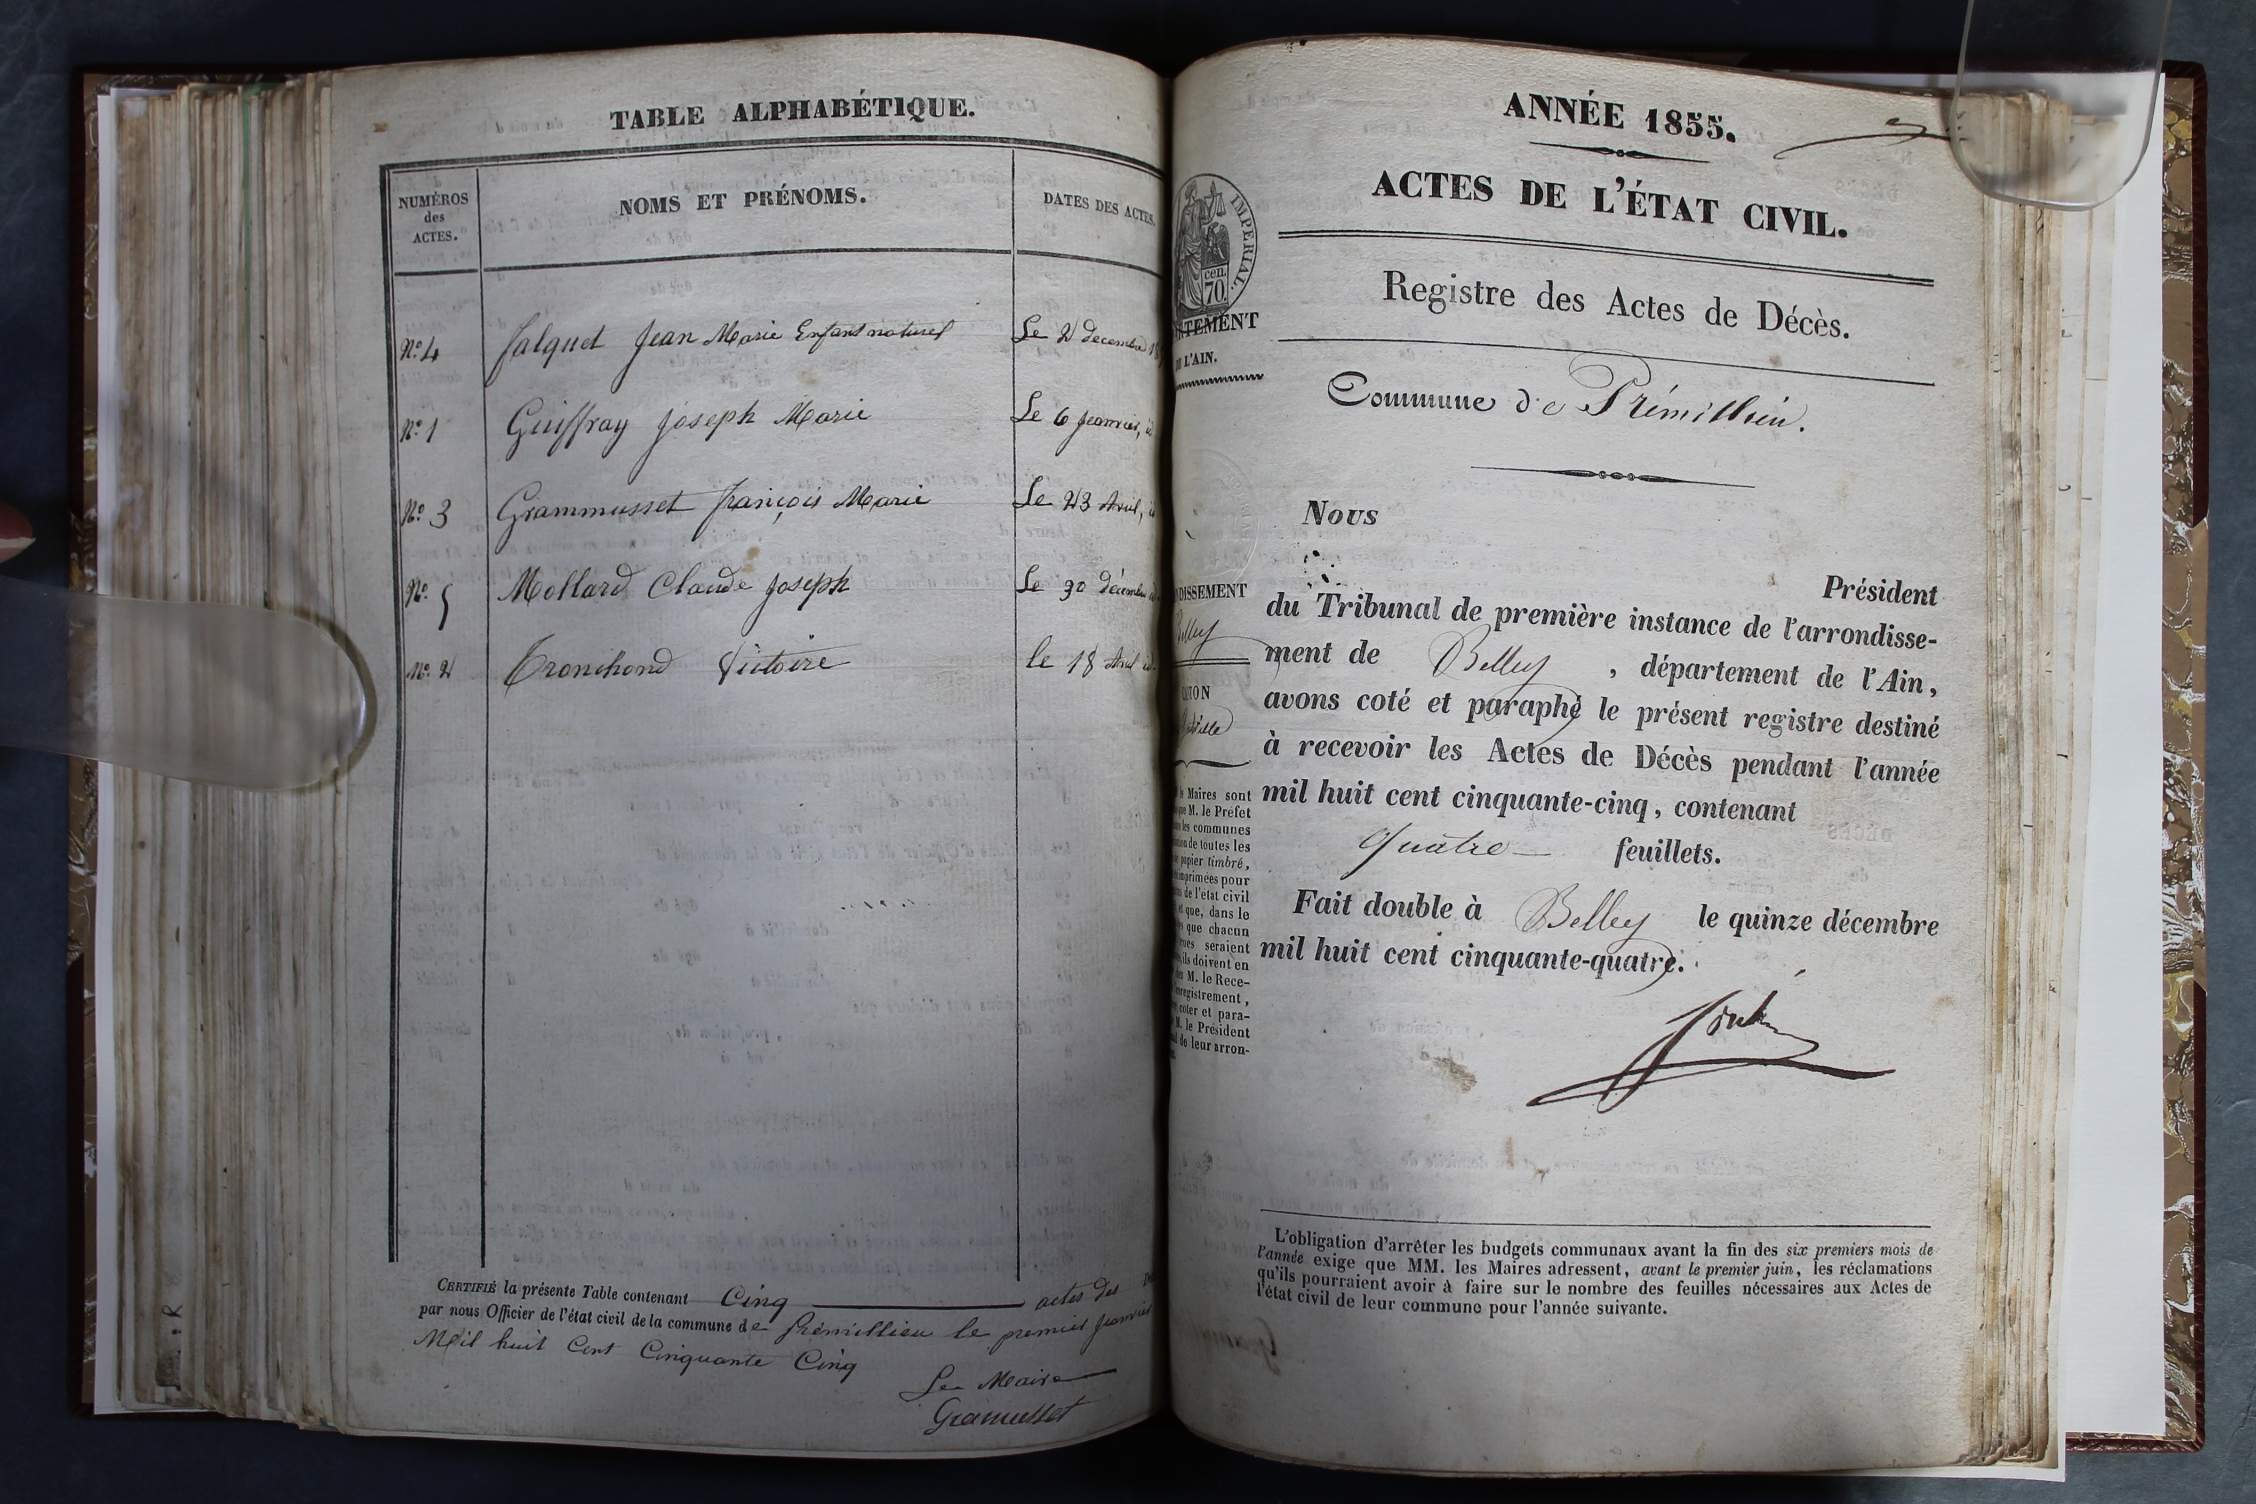 TABLE ALPHABÉTIQUE.
NUMÉROS
des
ACTES.
NOMS ET PRÉNOMS.
DATES DES ACTES.
N° 4 Jalquet Jean Marie Enfant naturel Le 2 decembre
N° 1 Guiffray Joseph Marie Le 6 Jeanvier,
N° 3 Grammusset françois Marie Le 23 Avril,
N° 5 Mollard Claude Joseph Le 30 décembre
N° 2 Tronchond Victoire le 18 Avril
CERTIFIÉ la présente Table contenant Cinq actes des
par nous Officier de l'état civil de la commune de Prémillieu le premier Jeanvier
Mil huit Cent Cinquante Cinq
Le Maire
Gramusset
ANNÉE 1855.
ACTES DE L'ÉTAT CIVIL.
IMPÉRIAL.
cen.
70.
Registre des Actes de Décès.
L'AIN.
Commune de Prémillieu.
Nous
Président
du Tribunal de première instance de l'arrondisse-
ment de Belley, département de l'Ain,
avons coté et paraphé le présent registre destiné
à recevoir les Actes de Décès pendant l'année
mil huit cent cinquante-cinq, contenant
Quatre feuillets.
Fait double à Belley le quinze décembre
mil huit cent cinquante-quatre.
Maires sont
que M. le Préfet
les communes
de toutes les
papier timbré,
imprimées pour
de l'état civil
et que, dans le
que chacun
seraient
ils doivent en
M. le Rece-
coter et para-
M. le Président
de leur arron-
L'obligation d'arrêter les budgets communaux avant la fin des six premiers mois de
l'année exige que MM. les Maires adressent, avant le premier juin, les réclamations
qu'ils pourraient avoir à faire sur le nombre des feuilles nécessaires aux Actes de
l'état civil de leur commune pour l'année suivante.